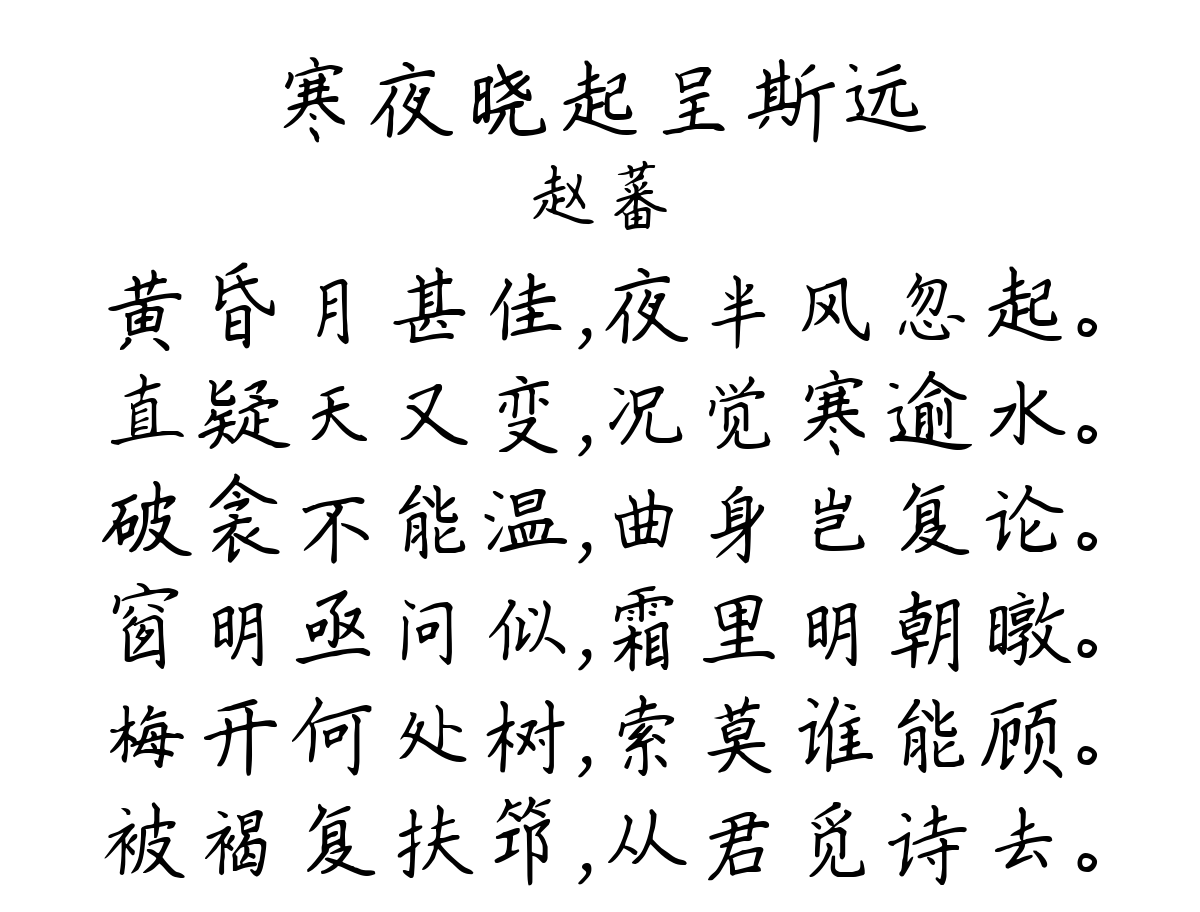 寒夜晓起呈斯远
赵蕃
黄昏月甚佳,夜半风忽起。
直疑天又变,况觉寒逾水。
破衾不能温,曲身岂复论。
窗明亟问似,霜里明朝暾。
梅开何处树,索莫谁能顾。
被褐复扶筇,从君觅诗去。